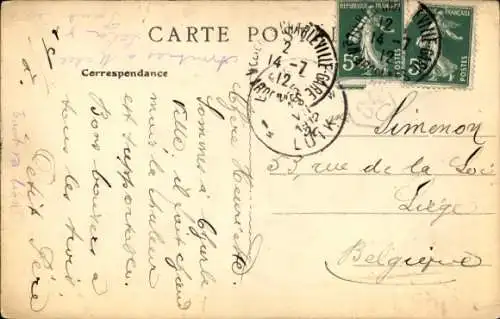 CARTE POSTALE
Correspondance
Chère Henriette.
Sommes à Charle-
ville. il fait chaud
mais la chaleur
est supportable.
Bons baisers à
tous les trois
Petit Père
Simenon
53, rue de la Loi
Liège
Belgique
REPUBLIQUE FRANÇAISE
POSTES
5c
POSTES
5c
CHARLEVILLE-GARE
14-7
12
ARDENNES